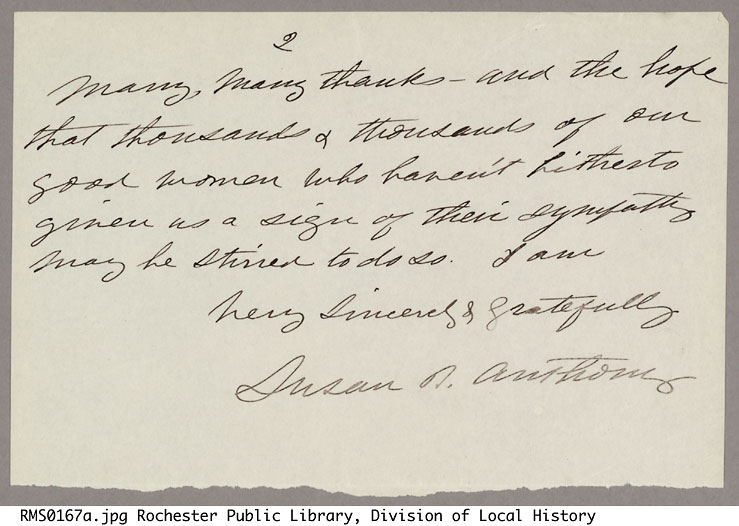 2
Many, Many thanks - and the hope
that thousands & thousands of our
good women who haven't hitherto
given us a sign of their sympathy
may be stirred to do so. I am
Very Sincerely & gratefully
Susan B. Anthony
RMS0167a.jpg Rochester Public Library, Division of Local History